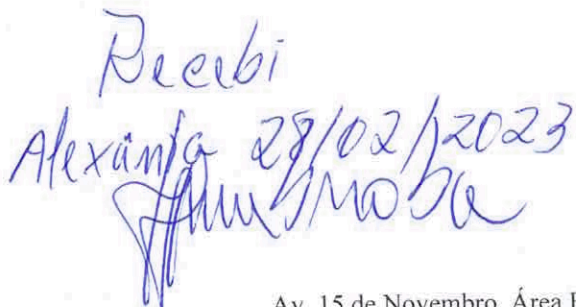 Recebi
Alexânia 28/02/2023
Av. 15 de Novembro, Área